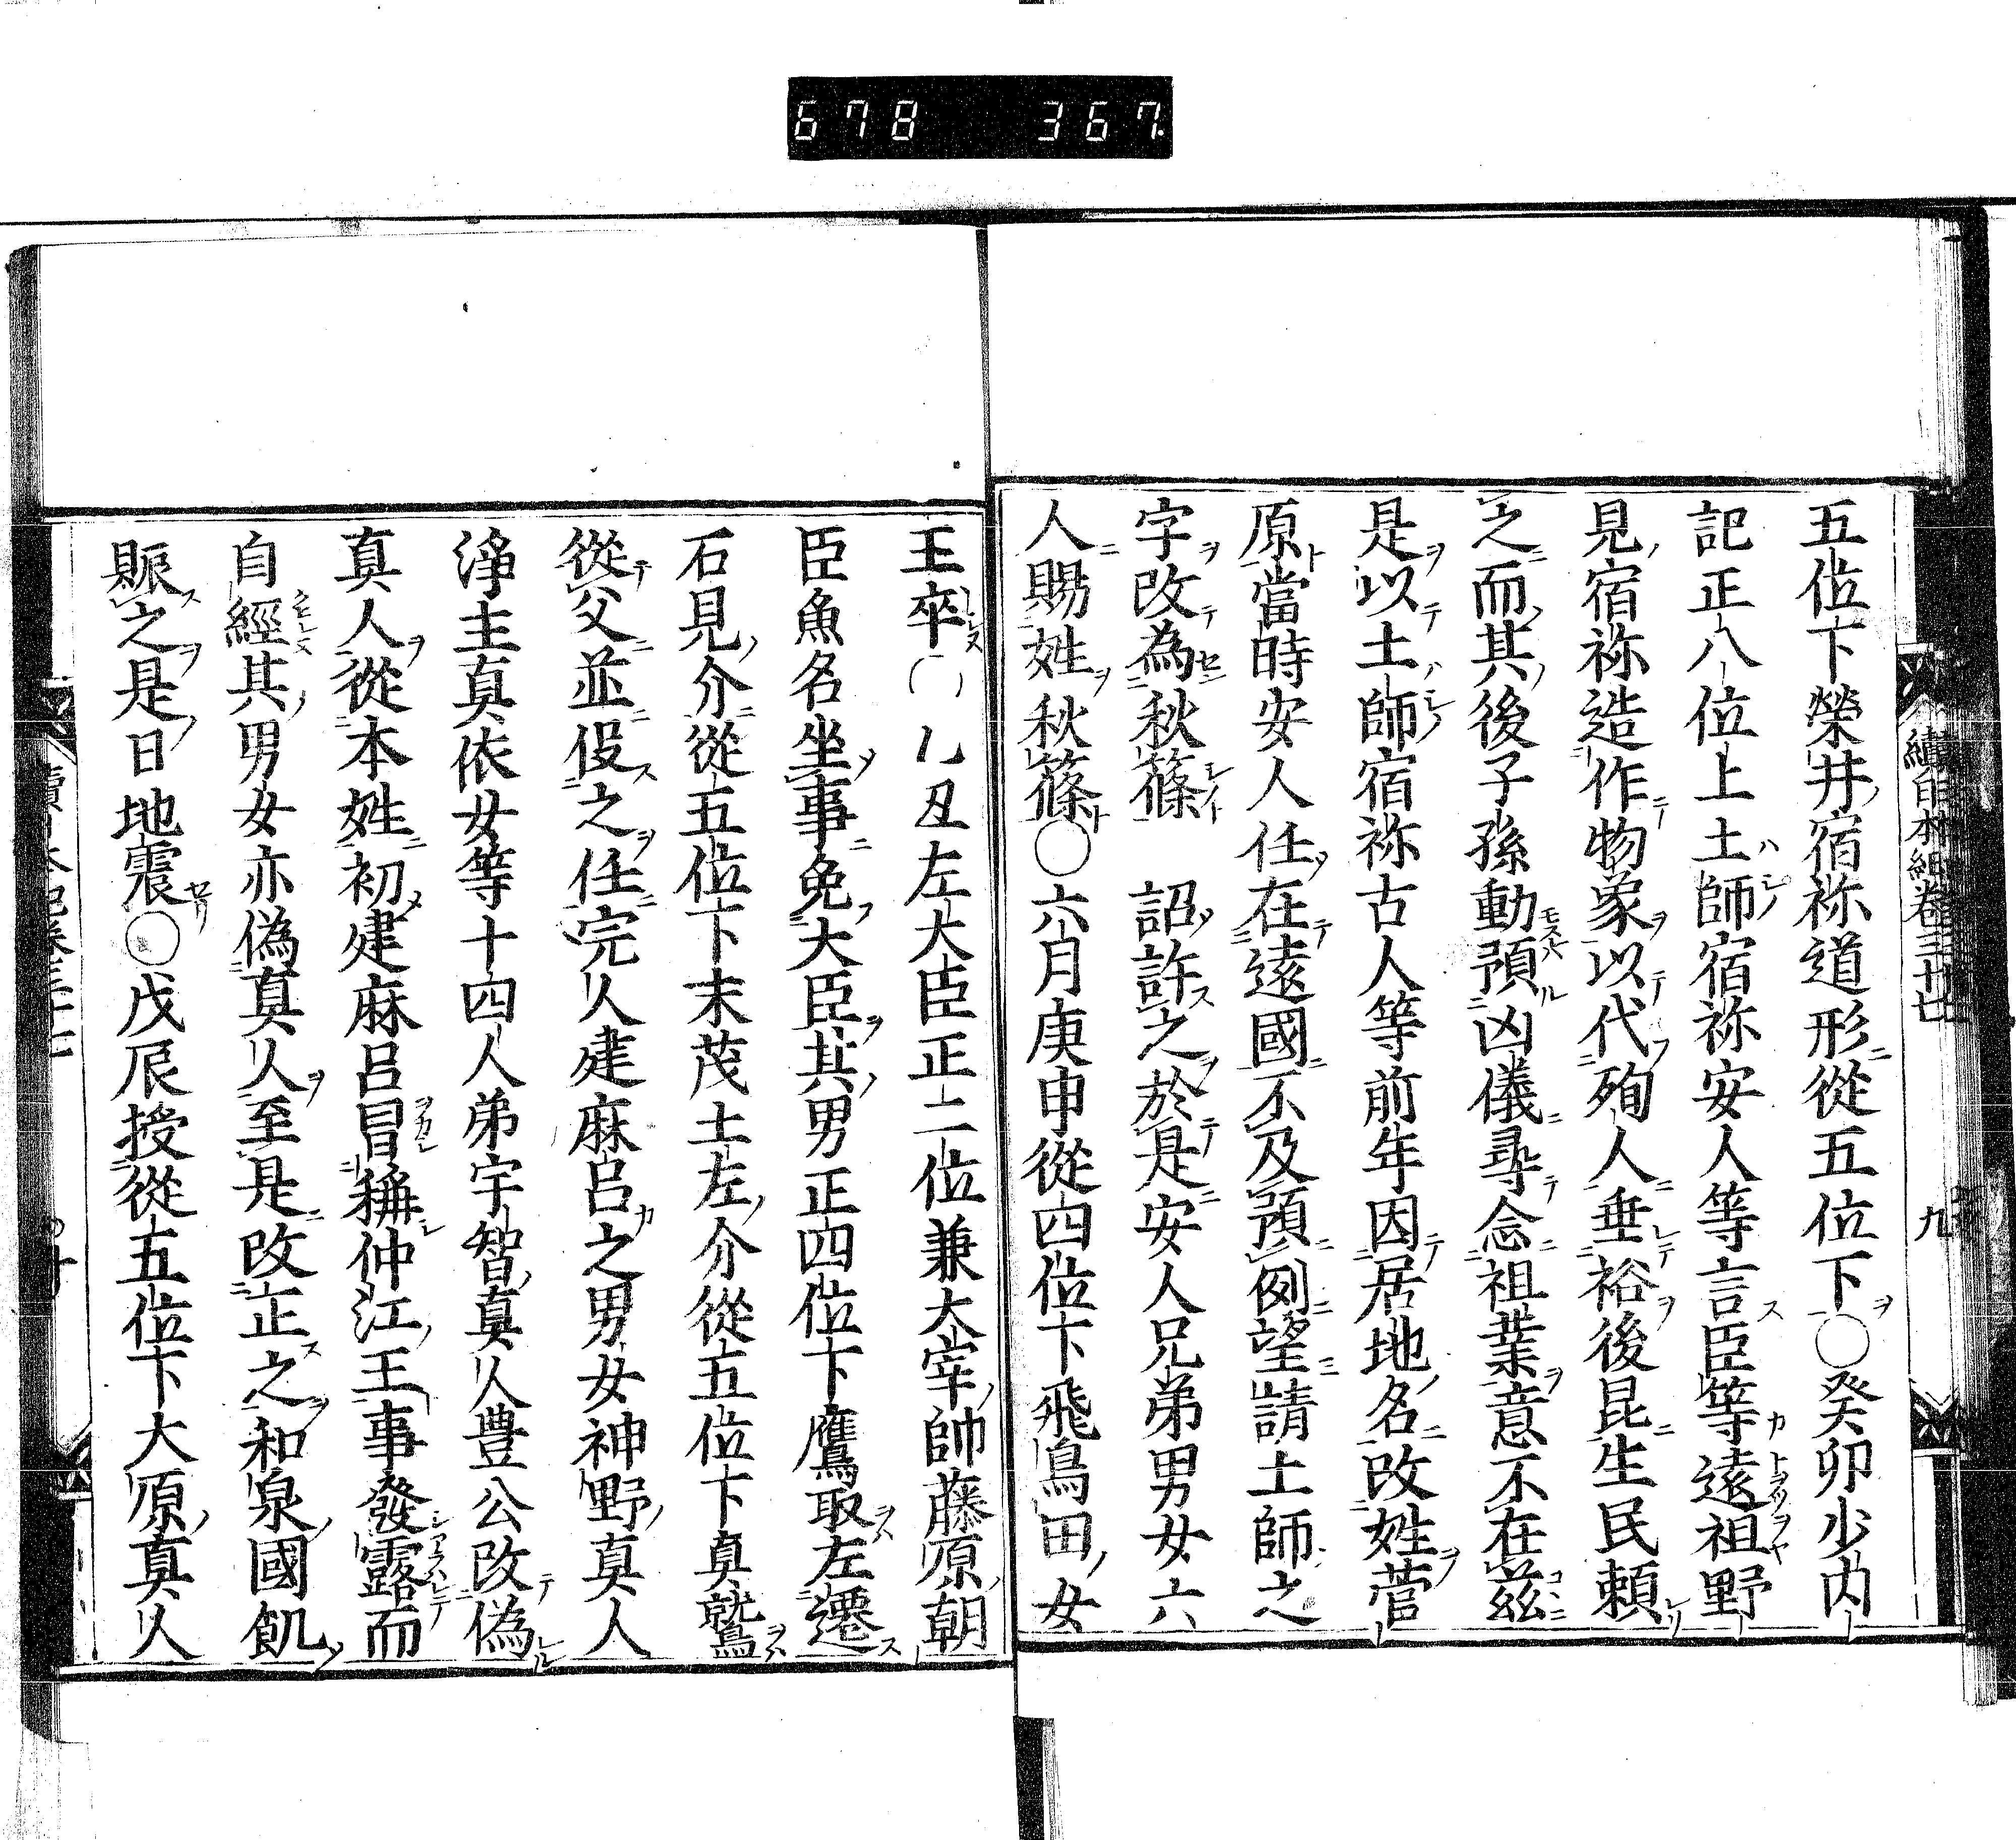 678 367
續日本紀卷三十七 九
五位下榮井宿祢道形從五位下○癸卯少内
記正八位上土師宿祢安人等言臣等遠祖野
見宿祢造作物象以代殉人垂裕後昆生民頼
之而其後子孫動預凶儀尋念祖業意不在茲
是以土師宿祢古人等前年因居地名改姓菅
原當時安人任在遠國不及預例望請土師之
字改為秋篠 詔許之於是安人兄弟男女六
人賜姓秋篠○六月庚申從四位下飛鳥田女
王卒○乙丑左大臣正二位兼大宰帥藤原朝
臣魚名坐事免大臣其男正四位下鷹取左遷
石見介從五位下末茂土左介從五位下真鷲
從父並促之任完人建麻呂之男女神野真人
淨主真依女等十四人弟宇智真人豊公改偽
真人從本姓初建麻呂冒稱仲江王事發露而
自經其男女亦偽真人至是改正之和泉國飢
賑之是日地震○戊辰授從五位下大原真人